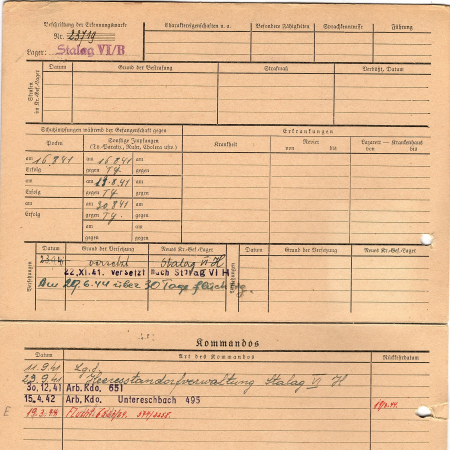 Beschriftung der Erkennungsmarke
Nr. 23719
Lager: Stalag VI/B
Charaktereigenschaften u. a.
Besondere Fähigkeiten
Sprachkenntnisse
Führung
Strafen im Kr.-Gef.-Lager
Datum
Grund der Bestrafung
Strafmaß
Verbüßt, Datum
Schutzimpfungen während der Gefangenschaft gegen
Erkrankungen
Pocken
Sonstige Impfungen
(Ty.-Paraty., Ruhr, Cholera usw.)
Krankheit
Revier
von bis
Lazarett — Krankenhaus
von bis
am 16.9.41
am 16.9.41
am
Erfolg
gegen Ty
gegen
am
am
am
Erfolg
gegen Ty
gegen
am
am
am
Erfolg
gegen Ty.
gegen
am
am
gegen
gegen
Versetzungen
Datum
Grund der Versetzung
Neues Kr.-Gef.-Lager
Datum
Grund der Versetzung
Neues Kr.-Gef.-Lager
versetzt Stalag VI H
22.XI.41. Versetzt nach Stalag VI H
Am 29.6.44 über 30 Tage flüchtig.
Kommandos
Datum
Art des Kommandos
Rückkehrdatum
11.9.41
Heeresstandortverwaltung Stalag VI H
30.12.41 Arb.Kdo. 651
15.4.42 Arb.Kdo. Untereschbach 495
E